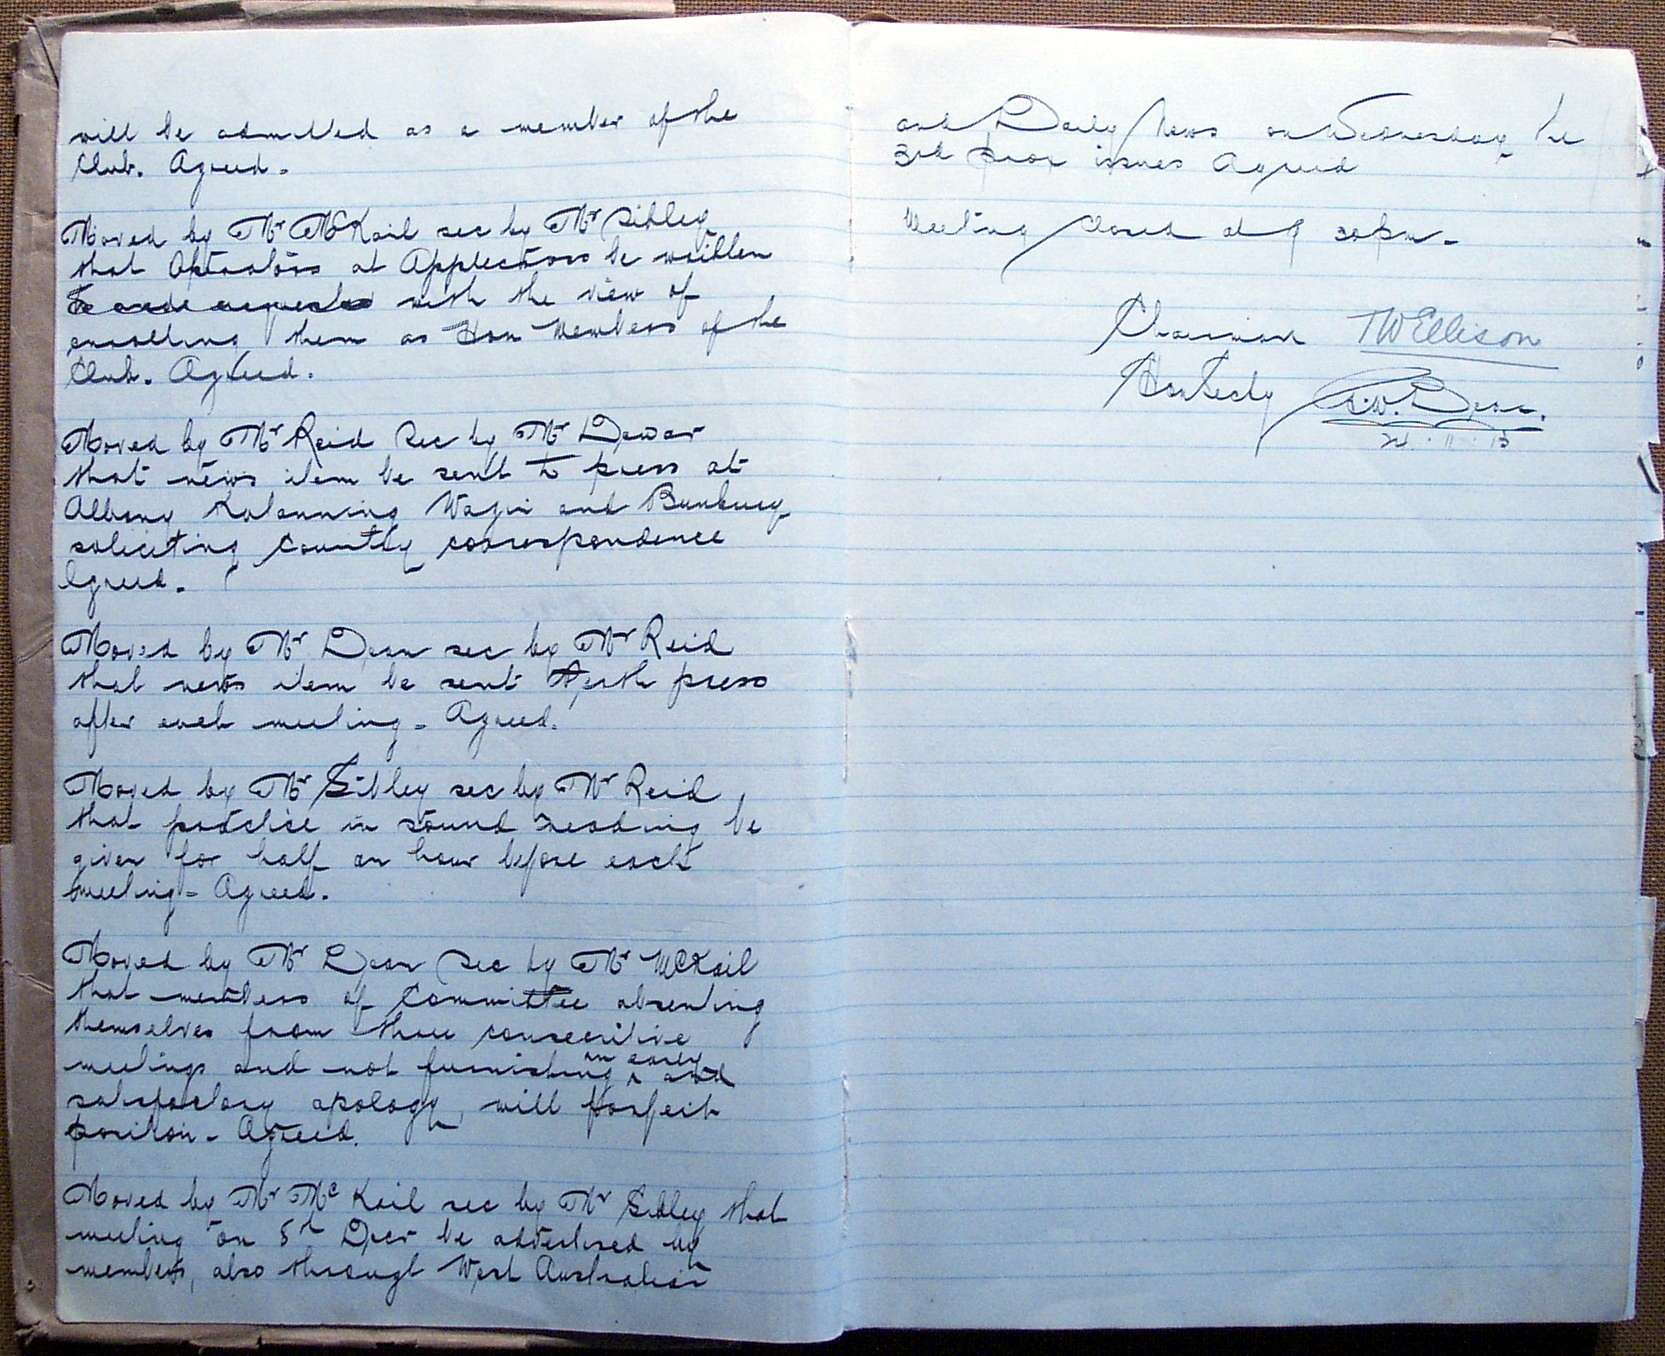 will be admitted as a member of the
Club. Agreed.
Moved by Mr McKail sec by Mr Sibley
that Operators at Applecross be written
to with the view of
enrolling them as Hon Members of the
Club. Agreed.
Moved by Mr Reid Sec by Mr Dewar
that news item be sent to press at
Albany Katanning Wagin and Bunbury
soliciting Country correspondence
Agreed.
Moved by Mr Dean sec by Mr Reid
that news item be sent Perth press
after each meeting - Agreed.
Moved by Mr Sibley sec by Mr Reid
that practice in sound reading be
given for half an hour before each
meeting - Agreed.
Moved by Mr Dean Sec by Mr McKail
that members of Committee absenting
themselves from three consecutive
meetings and not furnishing an early and
satisfactory apology, will forfeit
position - Agreed.
Moved by Mr McKail sec by Mr Sibley that
meeting on 5th Decr be advertised by
members, also through West Australian
and Daily News on Wednesday the
3rd prox issues Agreed
Meeting Closed at 9 30pm -
Chairman TW Ellison
Hon Secty W. Dean.